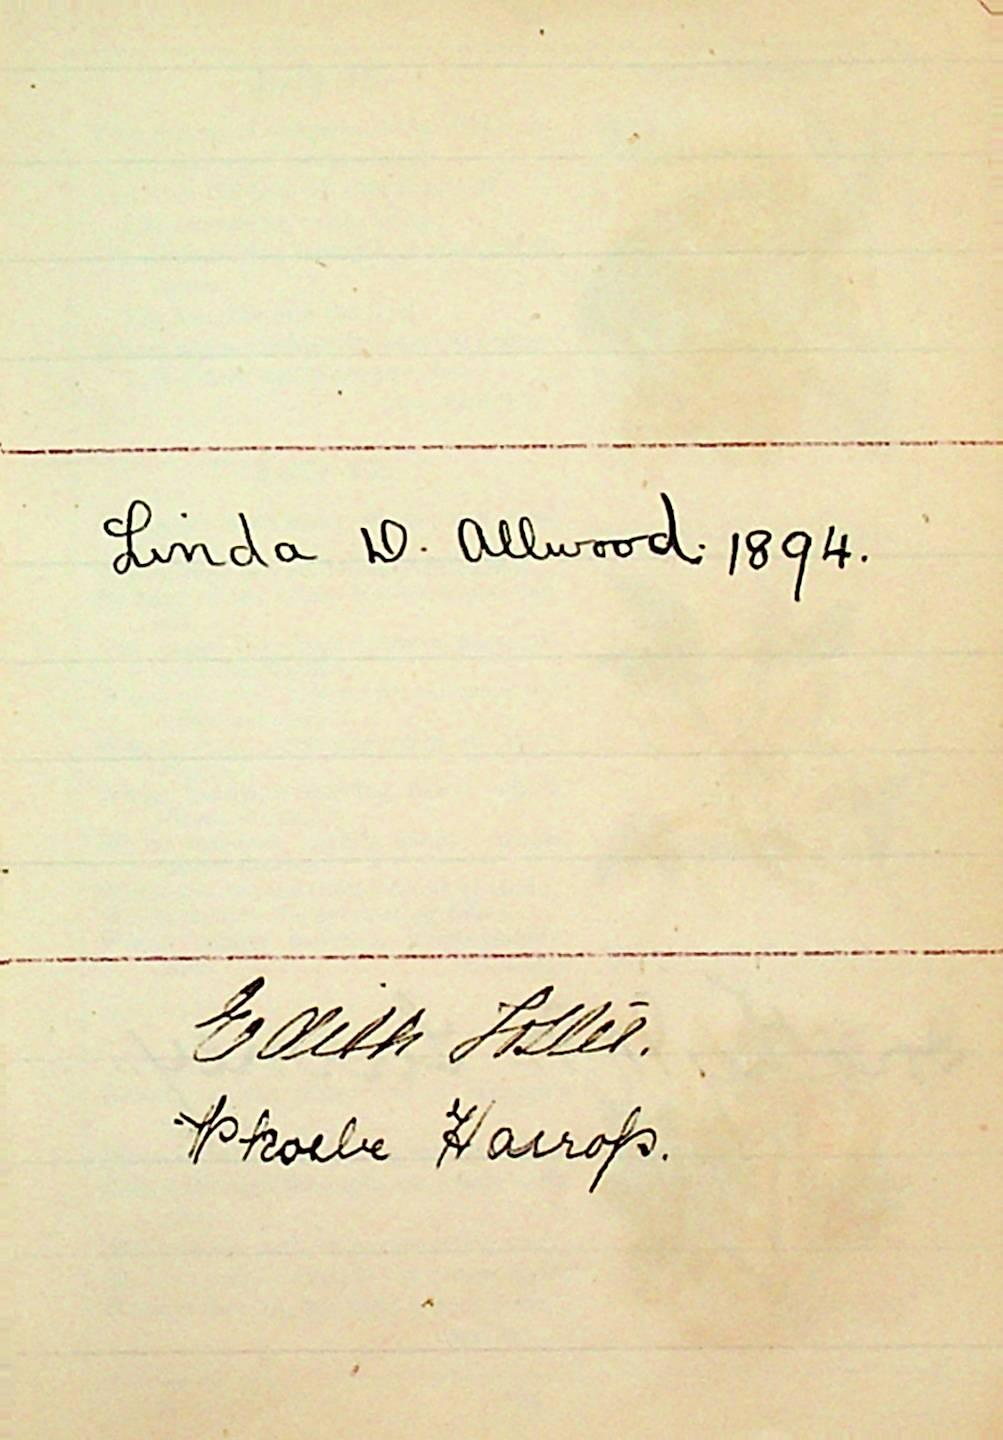 Linda D. Allwood. 1894.
Edith
Phoebe Harrop.